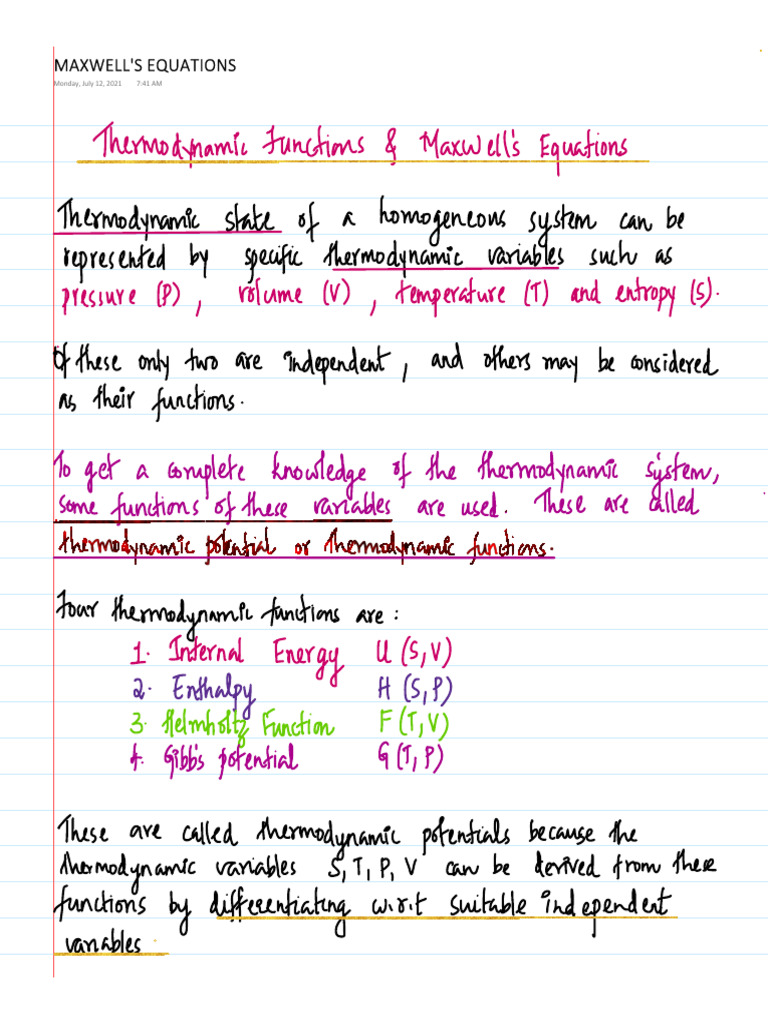 MAXWELL'S EQUATIONS
Monday, July 12, 2021 7:41 AM
Thermodynamic Functions & Maxwell's Equations
Thermodynamic state of a homogeneous system can be
represented by specific thermodynamic variables such as
pressure (P), volume (V), temperature (T) and entropy (S).
Of these only two are independent, and others may be considered
as their functions.
To get a complete knowledge of the thermodynamic system,
some functions of these variables are used. These are called
thermodynamic potential or thermodynamic functions.
Four thermodynamic functions are:
1. Internal Energy U (S,V)
2. Enthalpy H (S,P)
3. Helmholtz Function F(T,V)
4. Gibb's potential G(T,P)
These are called thermodynamic potentials because the
thermodynamic variables S,T,P,V can be derived from these
functions by differentiating w.r.t suitable independent
variables.